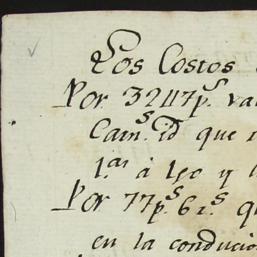 Los Costos
Por 3247p.s va
Cam.s id que
l.as à leo y
Por 77p.s 6r.s q
en la conducio